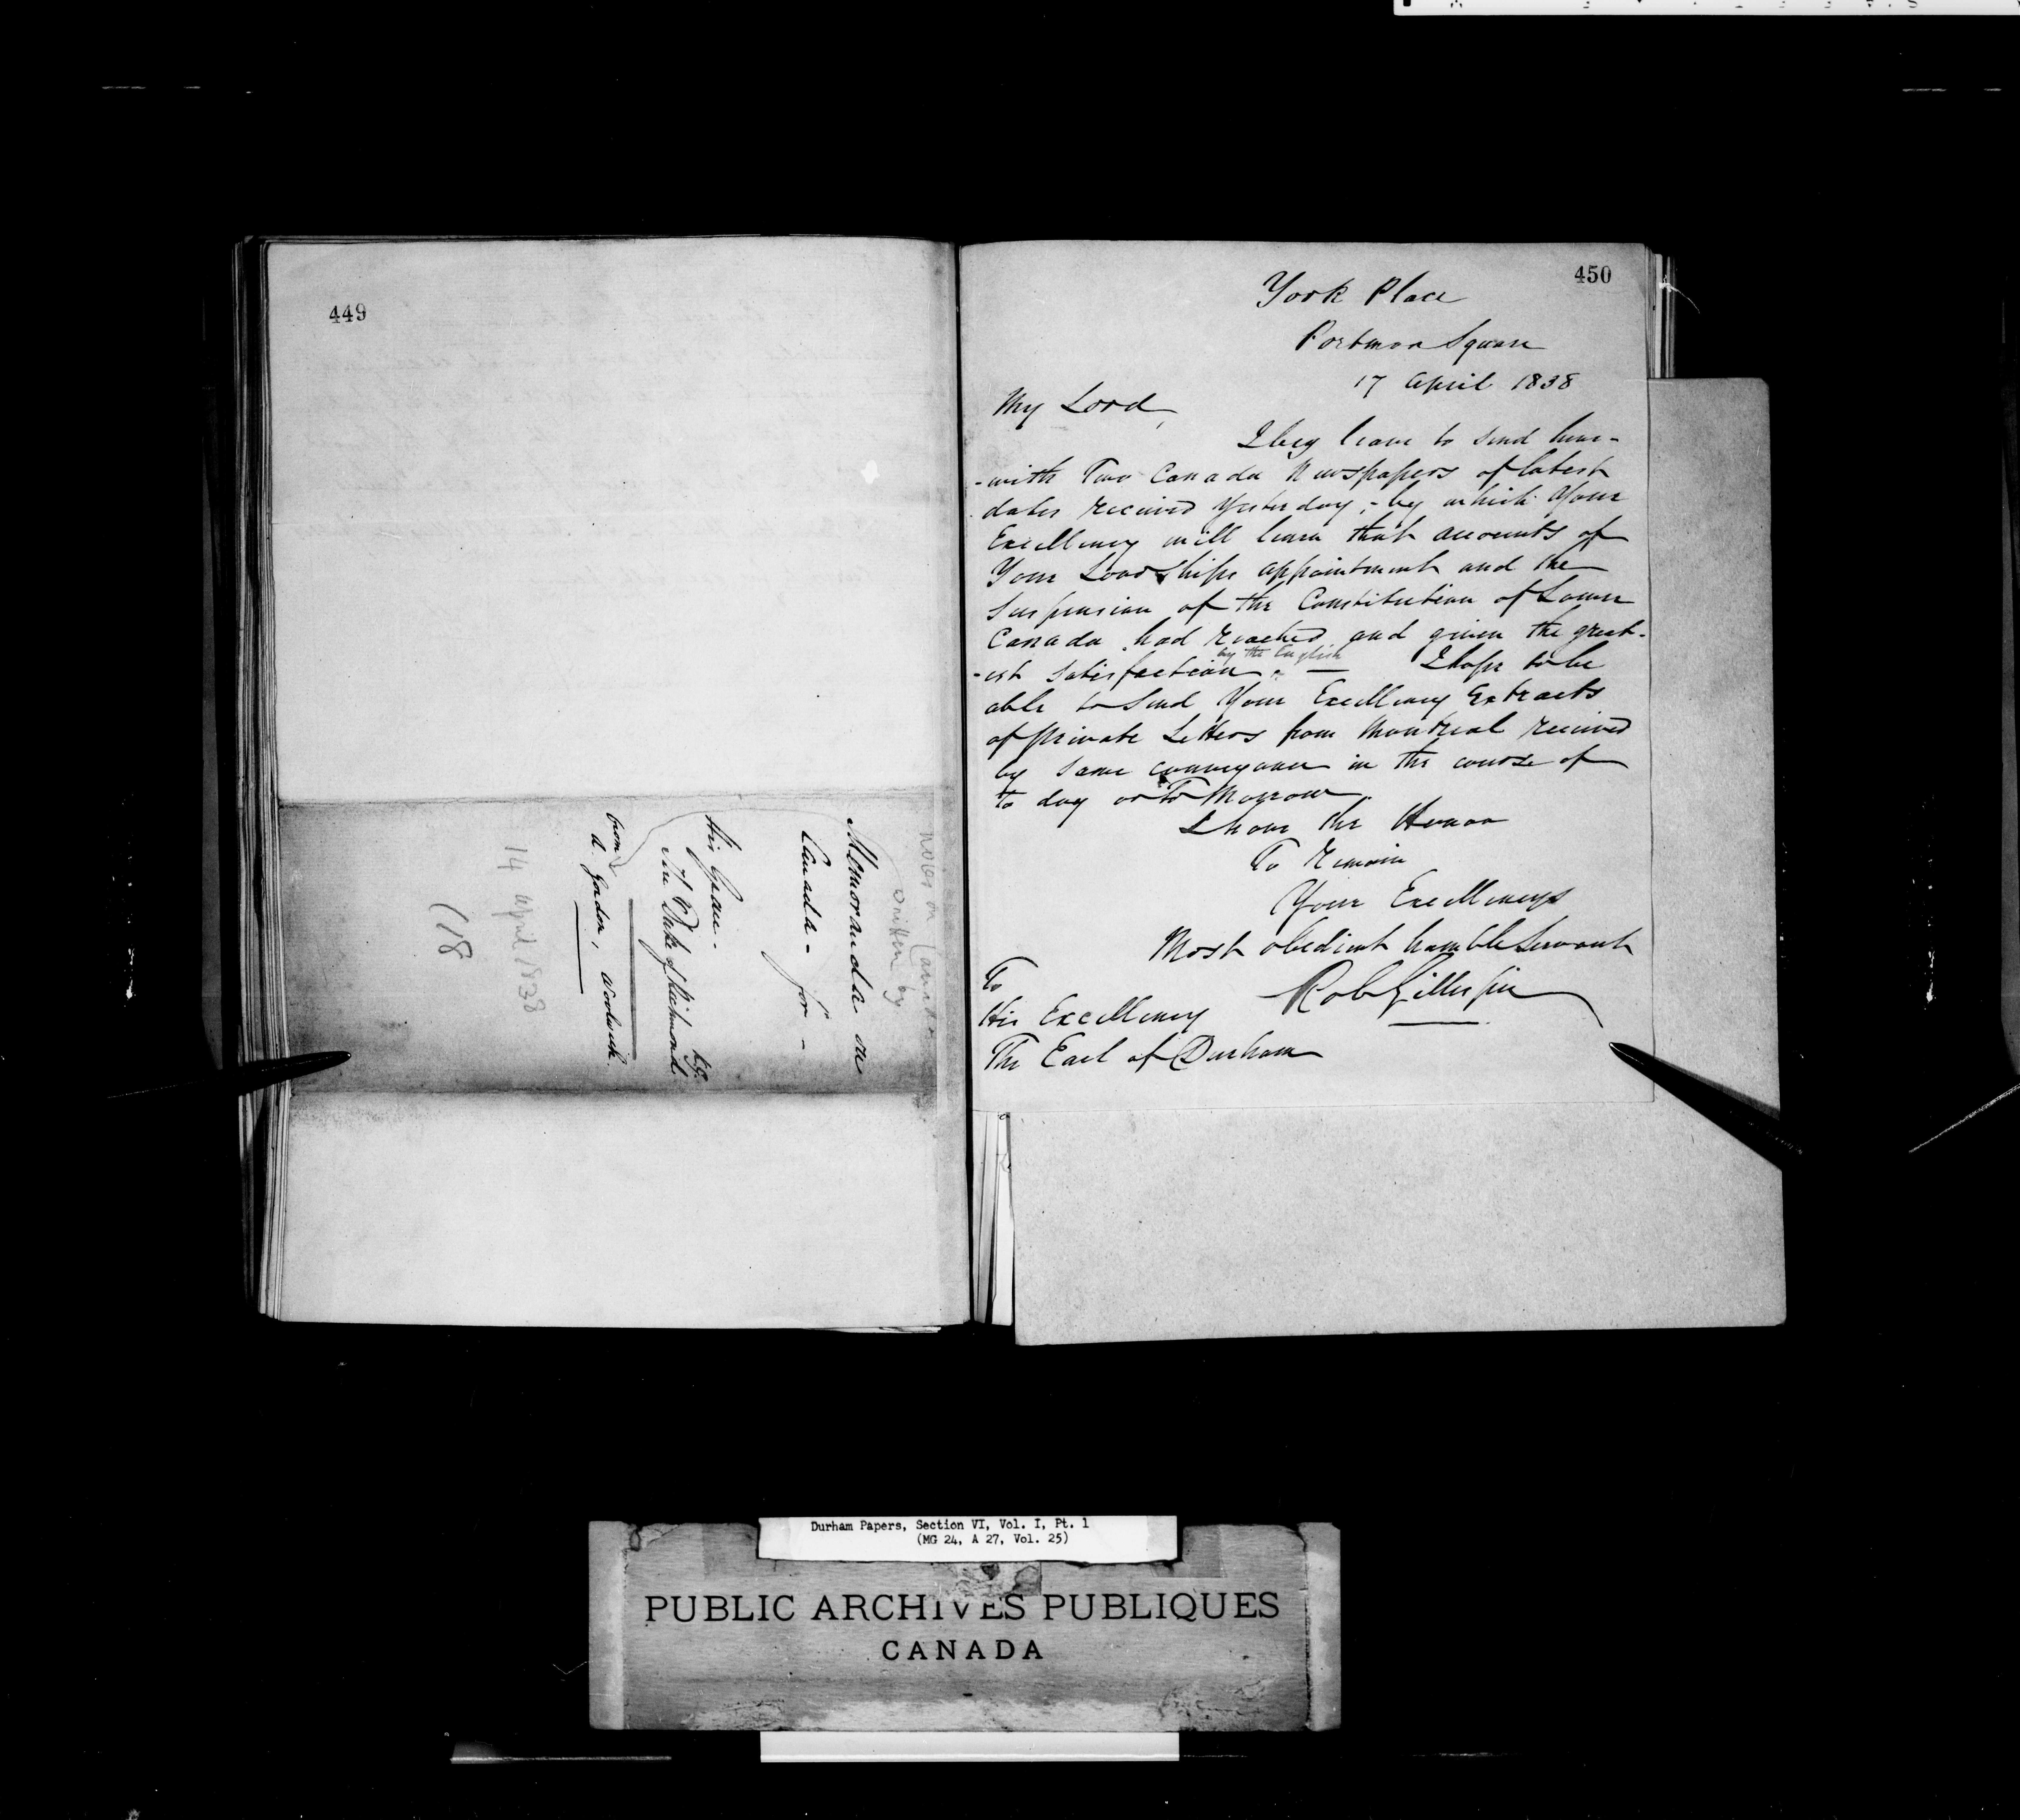 449
Notes on Canada
written by
Memoranda on
Canada -
for -
His Grace -
The Duke of Richmond K.G.
from
A. Gordon, Woolwich.
14 April 1838
(18
450
York Place
Portman Square
17 April 1838
My Lord,
I beg leave to send here-
-with Two Canada Newspapers of latest
dates received Yesterday, - by which Your
Excellency will learn that accounts of
Your Lordships appointment and the
Suspension of the Constitution of Lower
Canada had reached and given the great-
by the English
-est satisfaction. — I hope to be
able to Send Your Excellency Extracts
of private Letters from Montreal received
by same conveyance in the course of
to day or To Morrow.
I have the Honor
To Remain
Your Excellencys
Most obedient humble Servant
Rob Gillespie
To
His Excellency
The Earl of Durham
Durham Papers, Section VI, Vol. I, Pt. 1
(MG 24, A 27, Vol. 25)
PUBLIC ARCHIVES PUBLIQUES
CANADA